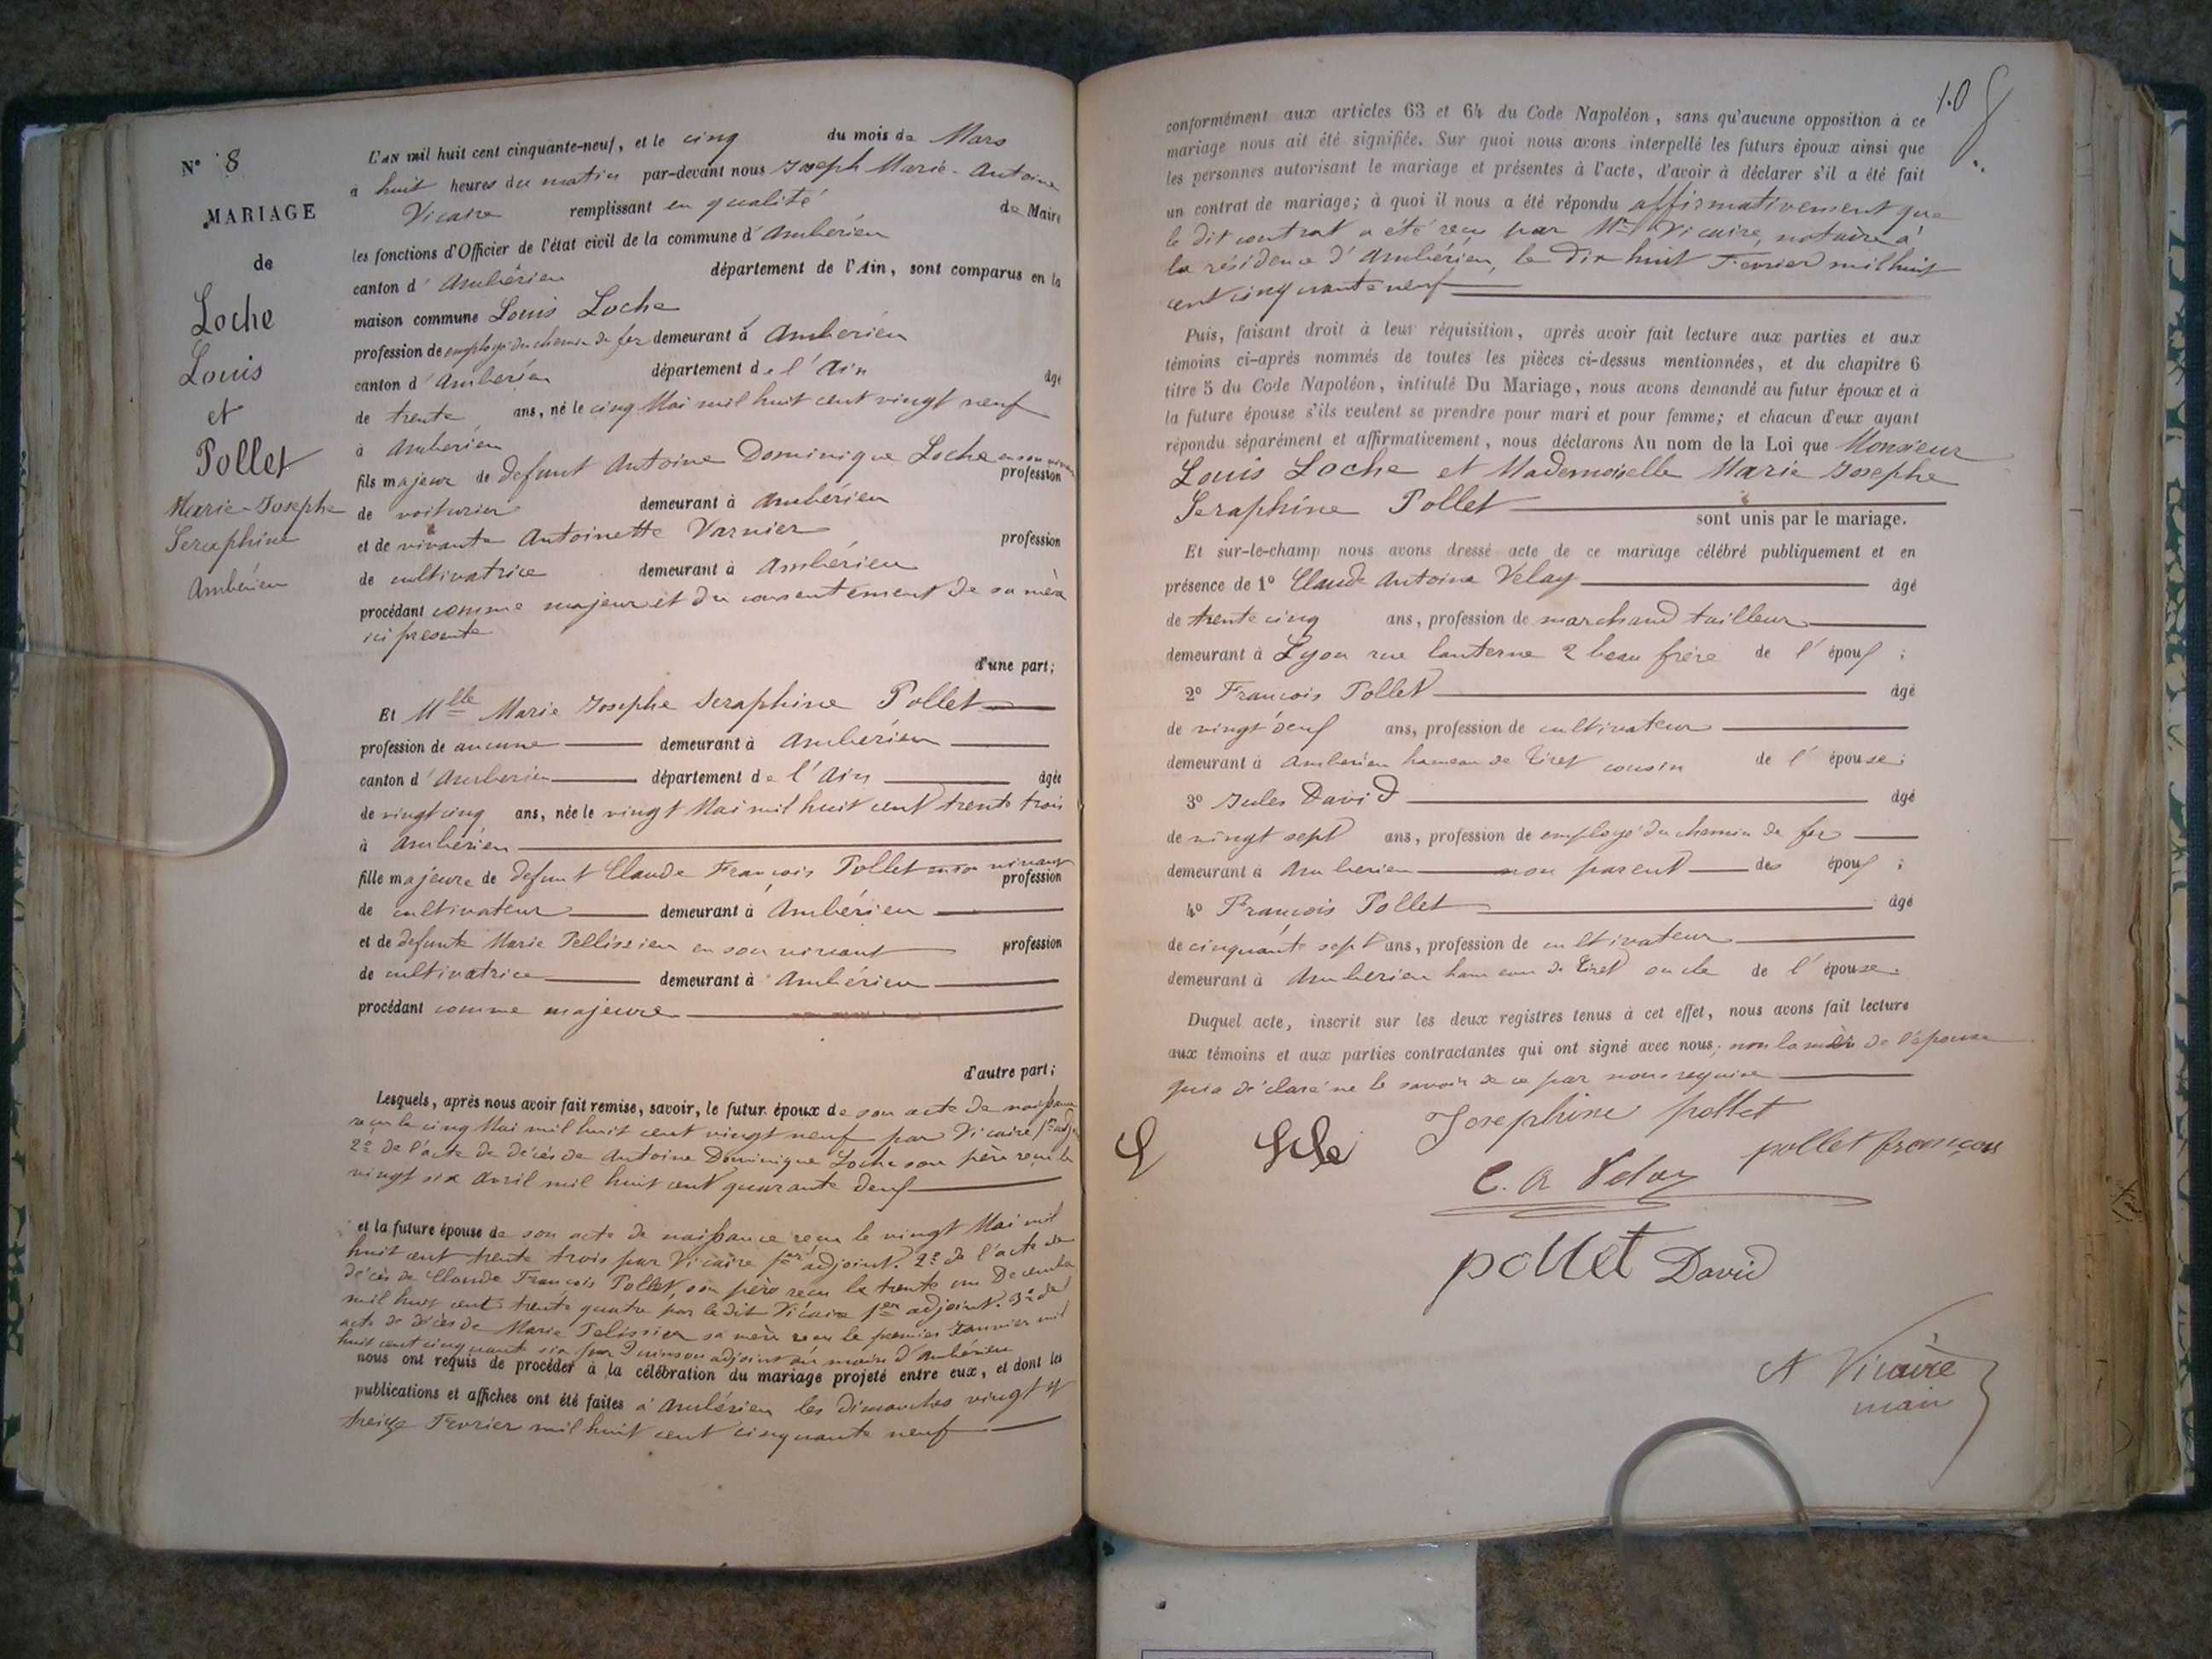 N° 8
MARIAGE
de
Loche
Louis
et
Pollet
Marie-Josephe
Seraphine
Ambérieu
L'AN mil huit cent cinquante-neuf, et le cinq du mois de Mars
à huit heures du matin par-devant nous Joseph Marie-Antoine
Vicaire remplissant en qualité de Maire
les fonctions d'Officier de l'état civil de la commune d'Ambérieu
canton d'Ambérieu département de l'Ain, sont comparus en la
maison commune Louis Loche
profession de employé du chemin de fer demeurant à Amberieu
canton d'Ambérieu département de l'Ain âgé
de trente ans, né le cinq Mai mil huit cent vingt neuf
à Amberieu
fils majeur de defunt Antoine Dominique Loche en son vivant profession
de voiturier demeurant à Ambérieu
et de vivante Antoinette Varnier profession
de cultivatrice demeurant à Ambérieu
procédant comme majeur et du consentement de sa mère
ici presente
d'une part;
Et Mlle Marie Josephe Seraphine Pollet
profession de aucune demeurant à Ambérieu
canton d'Amberieu département de l'Ain âgée
de vingt cinq ans, née le vingt Mai mil huit cent trente trois
à Ambérieu
fille majeure de defunt Claude François Pollet en son vivant profession
de cultivateur demeurant à Ambérieu
et de defunte Marie Pellissier en son vivant profession
de cultivatrice demeurant à Ambérieu
procédant comme majeure
d'autre part;
Lesquels, après nous avoir fait remise, savoir, le futur époux de son acte de naissance
reçu le cinq Mai mil huit cent vingt neuf par Vicaire 1er adj.
2° de l'acte de décès de Antoine Dominique Loche son père reçu le
vingt six avril mil huit cent quarante deux
et la future épouse de son acte de naissance reçu le vingt Mai mil
huit cent trente trois par Vicaire 1er adjoint. 2° de l'acte de
décès de Claude François Pollet, son père reçu le trente un Decembre
mil huit cent trente quatre par le dit Vicaire 1er adjoint. 3° de l'
acte de décès de Marie Pelissier sa mère reçu le premier Janvier mil
huit cent cinquante six par adjoint au maire d'Ambérieu
nous ont requis de procéder à la célébration du mariage projeté entre eux, et dont les
publications et affiches ont été faites à Ambérieu les dimanches vingt et
treize Fevrier mil huit cent cinquante neuf
108
conformément aux articles 63 et 64 du Code Napoléon, sans qu'aucune opposition à ce
mariage nous ait été signifiée. Sur quoi nous avons interpellé les futurs époux ainsi que
les personnes autorisant le mariage et présentes à l'acte, d'avoir à déclarer s'il a été fait
un contrat de mariage; à quoi il nous a été répondu affirmativement que
le dit contrat a été reçu par Me Vicaire, notaire à
la résidence d'Ambérieu, le dix huit Fevrier mil huit
cent cinquante neuf
Puis, faisant droit à leur réquisition, après avoir fait lecture aux parties et aux
témoins ci-après nommés de toutes les pièces ci-dessus mentionnées, et du chapitre 6
titre 5 du Code Napoléon, intitulé Du Mariage, nous avons demandé au futur époux et à
la future épouse s'ils veulent se prendre pour mari et pour femme; et chacun d'eux ayant
répondu séparément et affirmativement, nous déclarons Au nom de la Loi que Monsieur
Louis Loche et Mademoiselle Marie Josephe
Seraphine Pollet
sont unis par le mariage.
Et sur-le-champ nous avons dressé acte de ce mariage célébré publiquement et en
présence de 1° Claude Antoine Velay âgé
de trente cinq ans, profession de marchand tailleur
demeurant à Lyon rue lanterne 2 beau frère de l'époux;
2° François Pollet âgé
de vingt deux ans, profession de cultivateur
demeurant à Amberieu hameau de Tiret cousin de l'épouse;
3° Jules David âgé
de vingt sept ans, profession de employé du chemin de fer
demeurant à Amberieu non parent des époux;
4° François Pollet âgé
de cinquante sept ans, profession de cultivateur
demeurant à Amberieu hameau de Tiret oncle de l'épouse.
Duquel acte, inscrit sur les deux registres tenus à cet effet, nous avons fait lecture
aux témoins et aux parties contractantes qui ont signé avec nous, non la mère de l'époux
qui a déclaré ne le savoir de ce par nous requise
Josephine pollet
pollet françois
C. A Velay
pollet David
A Vicaire
maire